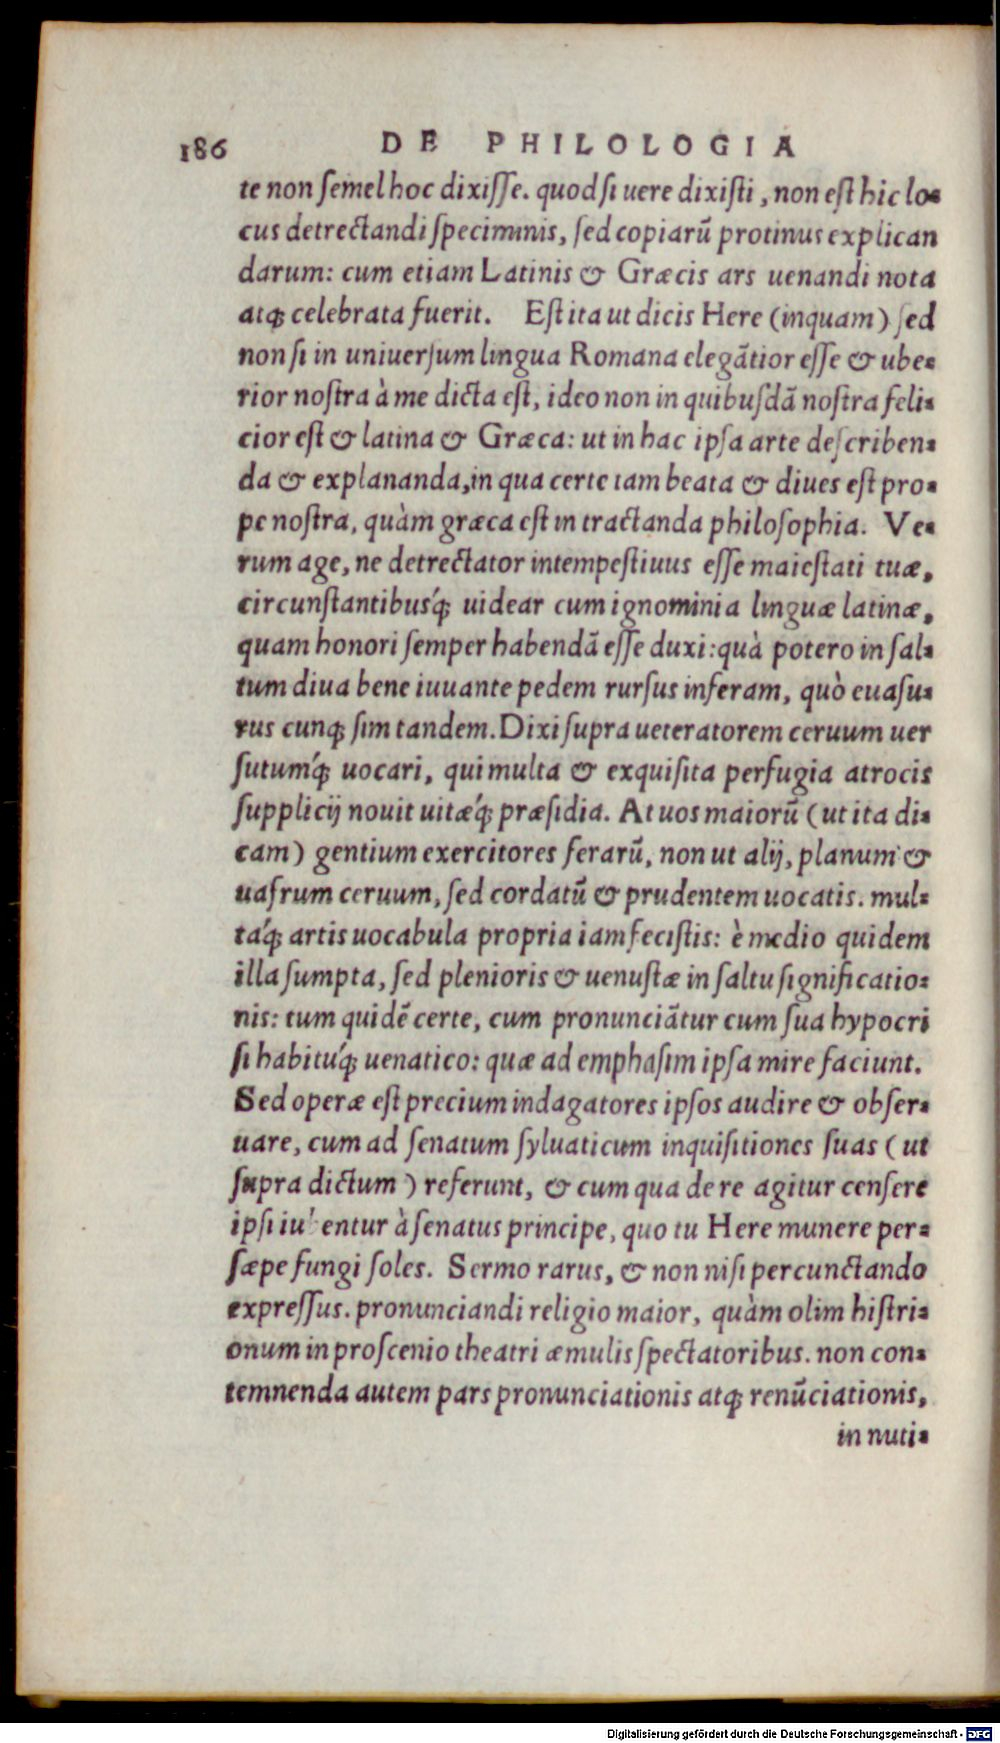 186 DE PHILOLOGIA
te non ſemel hoc dixiſſe. quod ſi uere dixiſti, non eſt hic lo-
cus detrectandi ſpeciminis, ſed copiarũ protinus explican
darum: cum etiam Latinis & Græcis ars uenandi nota
atq; celebrata fuerit. Eſt ita ut dicis Here (inquam) ſed
non ſi in uniuerſum lingua Romana elegãtior eſſe & ube-
rior noſtra à me dicta eſt, ideo non in quibuſdã noſtra feli-
cior eſt & latina & Græca: ut in hac ipſa arte deſcriben-
da & explananda, in qua certe tam beata & diues eſt pro-
pe noſtra, quàm græca eſt in tractanda philoſophia. Ve-
rum age, ne detrectator intempeſtiuus eſſe maieſtati tuæ,
circunſtantibuſq́; uidear cum ignominia linguæ latinæ,
quam honori ſemper habendã eſſe duxi: quà potero in ſal-
tum diua bene iuuante pedem rurſus inferam, quò euaſu-
rus cunq; ſim tandem. Dixi ſupra ueteratorem ceruum uer
ſutumq́; uocari, qui multa & exquiſita perfugia atrocis
ſupplicij nouit uitæq́; præſidia. At uos maiorũ (ut ita di-
cam) gentium exercitores ferarũ, non ut alij, planum &
uafrum ceruum, ſed cordatũ & prudentem uocatis. mul-
taq́; artis uocabula propria iam feciſtis: è medio quidem
illa ſumpta, ſed plenioris & uenuſtæ in ſaltu ſignificatio-
nis: tum quidẽ certe, cum pronunciãtur cum ſua hypocri
ſi habituq́; uenatico: quæ ad emphaſim ipſa mire faciunt.
Sed operæ eſt precium indagatores ipſos audire & obſer-
uare, cum ad ſenatum ſyluaticum inquiſitiones ſuas (ut
ſupra dictum) referunt, & cum qua de re agitur cenſere
ipſi iubentur à ſenatus principe, quo tu Here munere per-
ſæpe fungi ſoles. Sermo rarus, & non niſi percunctando
expreſſus. pronunciandi religio maior, quàm olim hiſtri-
onum in proſcenio theatri æmulis ſpectatoribus. non con-
temnenda autem pars pronunciationis atq; renũciationis,
in nuti-
Digitalisierung gefördert durch die Deutsche Forschungsgemeinschaft - DFG